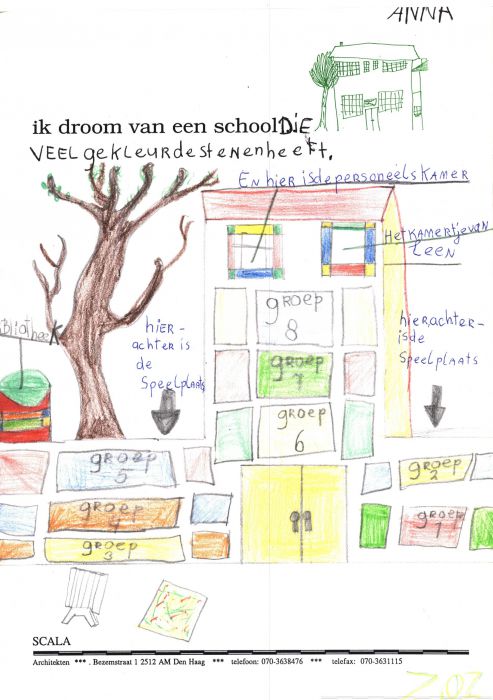 ANNA
ik droom van een school DIE
VEEL gekleurde stenen heeft.
En hier is de personeels KAMER
Het KAMERtje van
Leen
Bliotheek
hier-
achter is
de
Speelplaats
hierachter-
is de
Speelplaats
groep
8
groep
7
groep
6
groep
5
groep
2
groep
4
groep
1
groep
3
SCALA
Architekten *** . Bezemstraat 1 2512 AM Den Haag *** telefoon: 070-3638476 *** telefax: 070-3631115